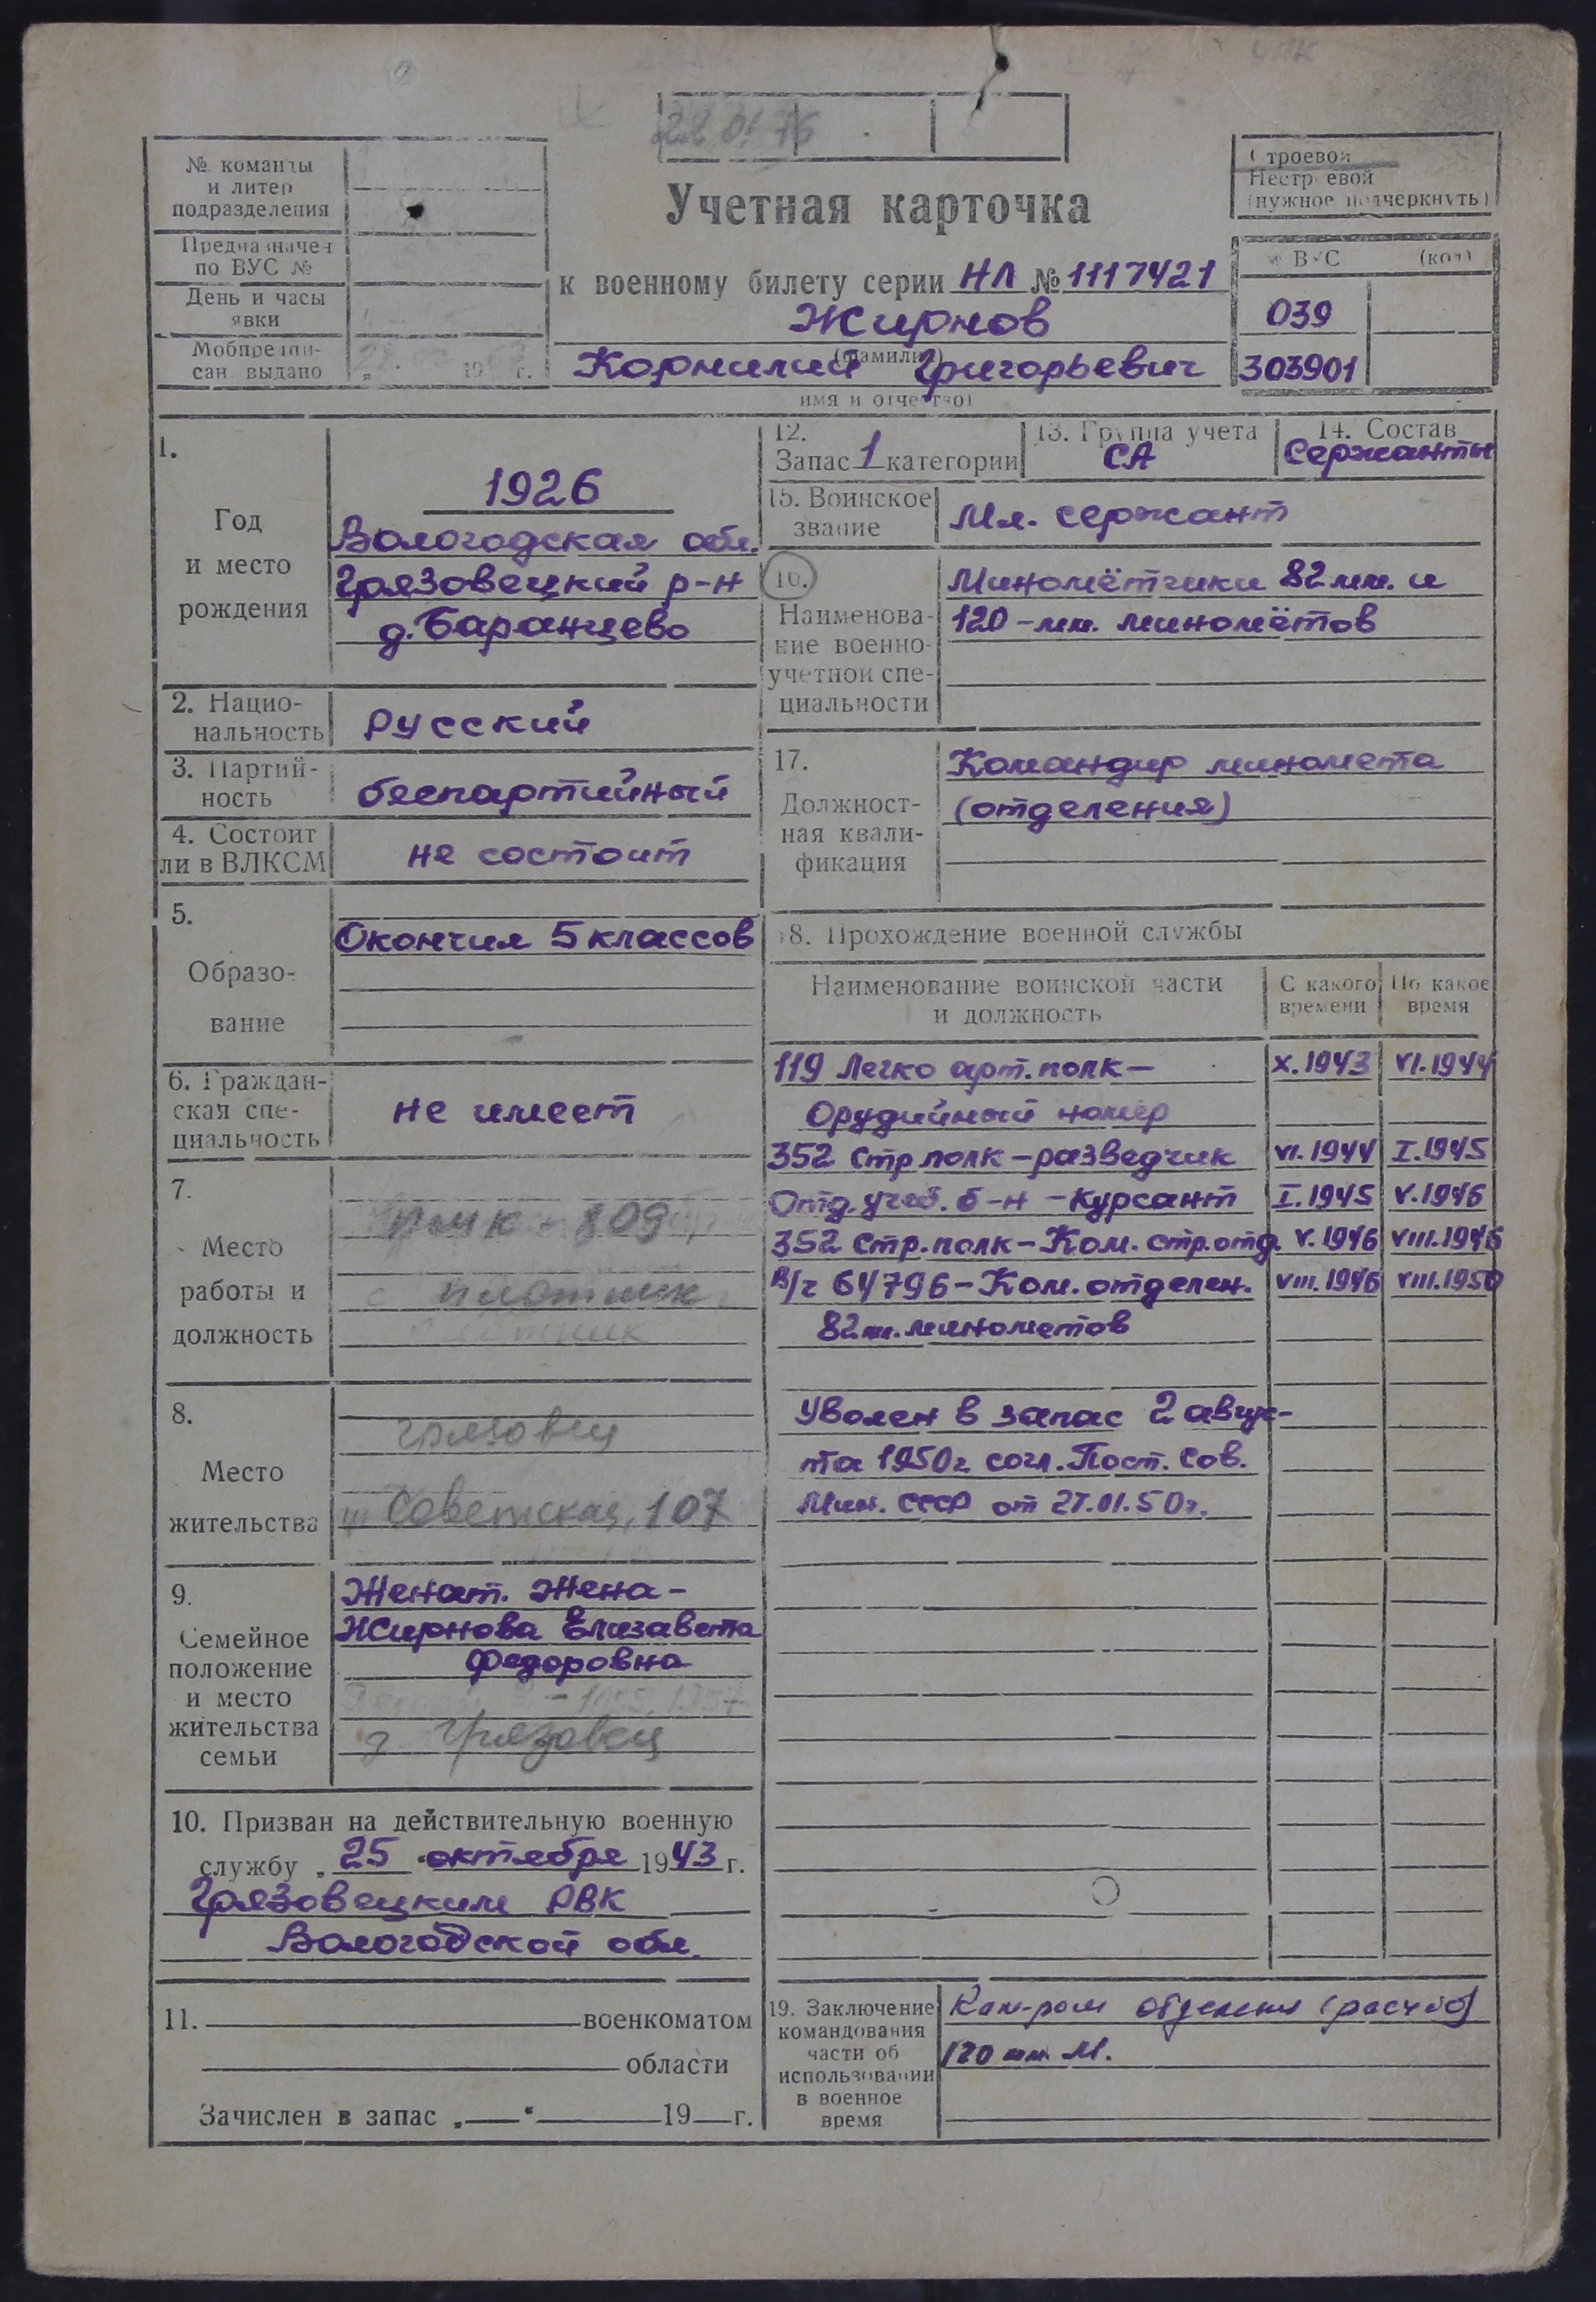 22 01 76
№ команды
и литер
подразделения
Предназначен
по ВУС №
День и часы
явки
Мобпредпи-
сан. выдано
19 г.
Учетная карточка
к военному билету серии НЛ № 1117421
Жирнов
(фамилия)
Корнилий Григорьевич
имя и отчество)
Строевой
Нестроевой
(нужное подчеркнуть)
№ ВУС (код)
039
303901
1.
Год
и место
рождения
1926
Вологодская обл.
Грязовецкий р-н
д. Баранцево
2. Нацио-
нальность
русский
3. Партий-
ность
беспартийный
4. Состоит
ли в ВЛКСМ
не состоит
5.
Образо-
вание
Окончил 5 классов
6. Граждан-
ская спе-
циальность
не имеет
7.
Место
работы и
должность
пмк - 809
плотник
8.
Место
жительства
Грязовец
Советская, 107
9.
Семейное
положение
и место
жительства
семьи
Женат. Жена -
Жирнова Елизавета
Федоровна
г. Грязовец
10. Призван на действительную военную
службу „25 “октября 1943 г.
Грязовецким РВК
Вологодской обл.
11. военкоматом
области
Зачислен в запас „ “ 19 г.
12.
Запас 1 категории
13. Группа учета
СА
14. Состав
Сержанты
15. Воинское
звание
Мл. сержант
16.
Наименова-
ние военно-
учетной спе-
циальности
Миномётчики 82 мм. и
120 - мм. миномётов
17.
Должност-
ная квали-
фикация
Командир миномета
(отделения)
18. Прохождение военной службы
Наименование воинской части
и должность
С какого
времени
По какое
время
119 Легко арт. полк - X. 1943 VI. 1944
Орудийный номер
352 Стр полк - разведчик VI. 1944 I. 1945
Отд. учеб. б-н - курсант I. 1945 V. 1946
352 Стр. полк - Ком. стр. отд. V. 1946 VIII. 1946
В/ч 64796 - Ком. отделен. VIII. 1946 VIII. 1950
82 м. минометов
Уволен в запас 2 авгус-
та 1950г согл. Пост. Сов.
Мин. СССР от 27.01.50г.
19. Заключение
командования
части об
использовании
в военное
время
Ком-ром отделения (расчёта)
120 мм М.